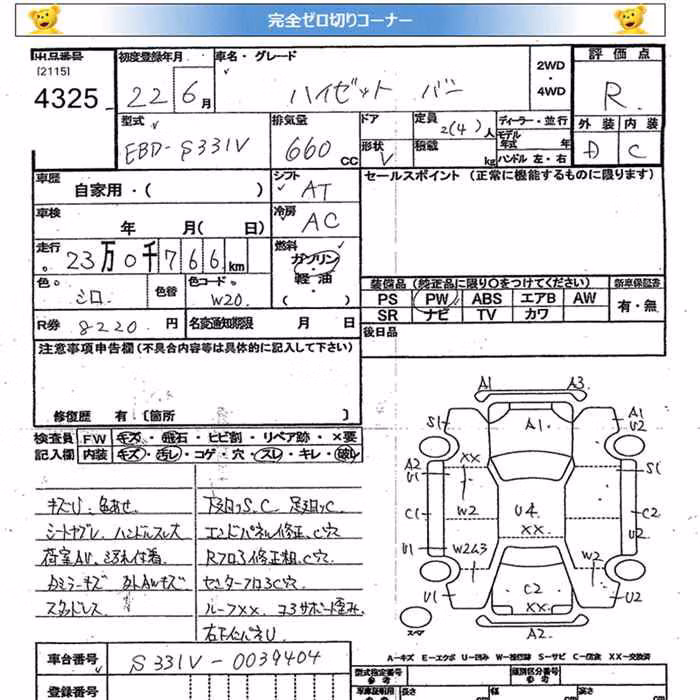 完全ゼロ切りコーナー
出品番号
[2115]
4325
初度登録年月
22 6月
車名・グレード
ハイゼット バン
2WD
・
4WD
評価点
R
型式
EBD-S331V
排気量
660 cc
ドア
形状 V
定員 2(4)人
積載 kg
ディーラー・並行
モデル
年式 年
ハンドル 左・右
外装 内装
D C
車歴
自家用・( )
シフト
AT
セールスポイント (正常に機能するものに限ります)
車検
年 月( 日)
冷房
AC
走行
23万0千766km
燃料
ガソリン
・
軽油
( )
色
シロ
色替
色コード
W20
装備品 (純正品に限り○をつけてください) 新車保証書
PS PW ABS エアB AW
SR ナビ TV カワ
有・無
R券 8220円
名変通知期限 月 日
後日品
注意事項申告欄 (不具合内容等は具体的に記入して下さい)
修復歴 有 〔箇所 〕
検査員 FW キズ・飛石・ヒビ割・リペア跡・×要
記入欄 内装 キズ・汚レ・コゲ・穴・スレ・キレ・破レ
キズU、色あせ
シートヤブレ、ハンドルスレ大
荷室AU、汚れ付着
スタッドレス
下廻りS、C 足廻りC
エンドパネル修正、C穴
Rフロア修正粗、C穴
センターフロアC穴
ルーフXX、コアサポート歪み
A1 A3
S1 A1 A1
U2
XX
A2
U1
S1
C1 W2 U4 C2
XX
U1 W2A3 W2 U2
C2
U1 XX U2
A2
スペア
A-キズ E-エクボ U-凹み W-補修跡 S-サビ C-腐食 XX-交換済
車台番号
S331V-0039404
登録番号
型式指定番号
参考
類別区分番号
参考
長さ cm 幅 cm 高さ cm